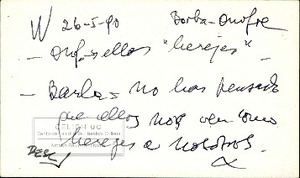 W 26-5-90 Borba-Onofre
- Onf-s ellos "herejes" -
- Barba - No has pensado
que ellos nos ven como
herejes a nosotros.
CELICH UC
DESC